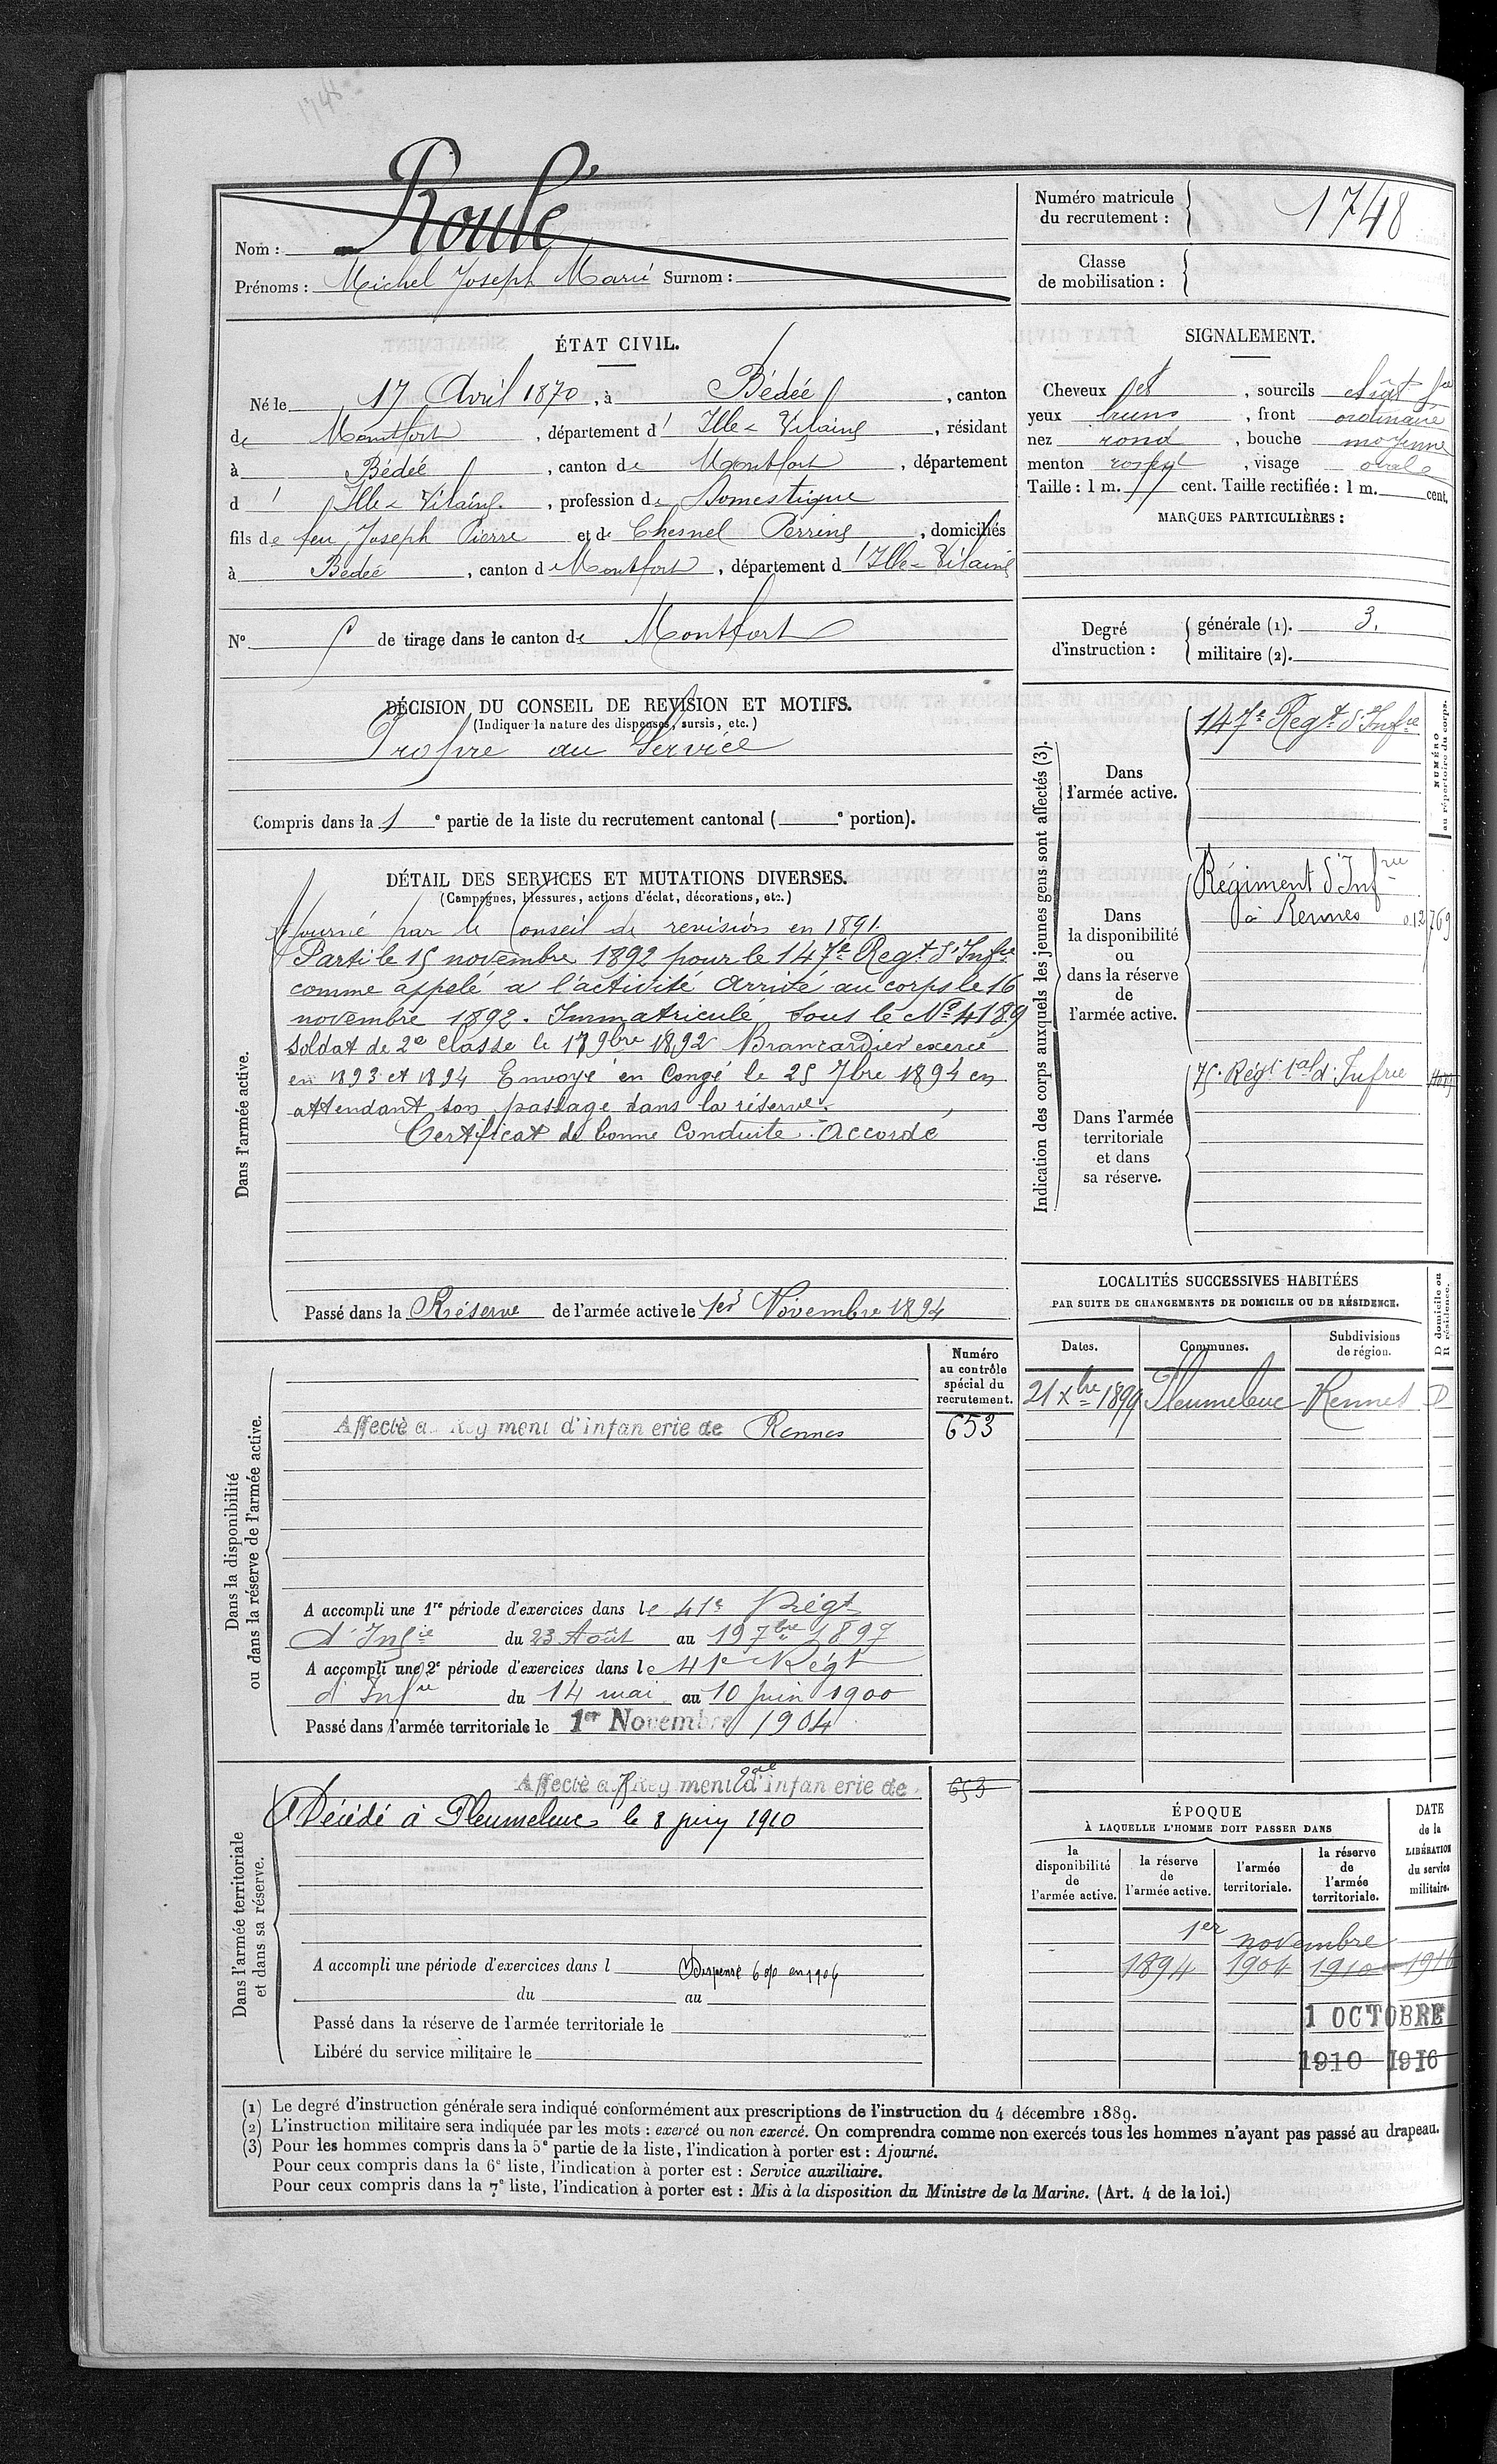 1748
Nom : Roulé
Prénoms : Michel Joseph Marie Surnom :
Numéro matricule du recrutement : 1748
Classe de mobilisation :
ÉTAT CIVIL.
Né le 17 Avril 1870, à Bédée, canton
de Montfort, département d' Ille & Vilaine, résidant
à Bédée, canton de Montfort, département
d' Ille & Vilaine, profession de Domestique
fils de feu Joseph Pierre et de Chesnel Perrine, domiciliés
à Bédée, canton d Montfort, département d' Ille & Vilaine
N° de tirage dans le canton de Montfort
SIGNALEMENT.
Cheveux et, sourcils chât
yeux bruns, front ordinaire
nez rond, bouche moyenne
menton rond, visage ovale
Taille : 1 m. cent. Taille rectifiée : 1 m. cent.
MARQUES PARTICULIÈRES :
Degré d'instruction : générale (1). 3.
militaire (2).
DÉCISION DU CONSEIL DE REVISION ET MOTIFS.
(Indiquer la nature des dispenses, sursis, etc.)
Propre au Service
Compris dans la 1e partie de la liste du recrutement cantonal ( e portion).
DÉTAIL DES SERVICES ET MUTATIONS DIVERSES.
(Campagnes, blessures, actions d'éclat, décorations, etc.)
Dans l'armée active.
Ajourné par le Conseil de revision en 1891.
Parti le 15 novembre 1892 pour le 147e Regt d'Infie
comme appelé a l'activité Arrivé au corps le 16
novembre 1892. Immatriculé sous le No 4189
Soldat de 2e Classe le 17 9bre 1892 Brancardier exercé
en 1893 et 1894 Envoyé en Congé le 25 7bre 1894 en
attendant son passage dans la réserve.
Certificat de bonne Conduite Accordé
Passé dans la Réserve de l'armée active le 1er Novembre 1894
Indication des corps auxquels les jeunes gens sont affectés (3).
NUMÉRO au répertoire du corps.
Dans l'armée active.
147e Regt d'Infie
Dans la disponibilité ou dans la réserve de l'armée active.
Régiment d'Infrie
à Rennes 012769
Dans l'armée territoriale et dans sa réserve.
75e Régt tal d'Infrie
LOCALITÉS SUCCESSIVES HABITÉES
PAR SUITE DE CHANGEMENTS DE DOMICILE OU DE RÉSIDENCE.
Dates. Communes. Subdivisions de région. D domicile ou R résidence.
21 Xbre 1899 Pleumeleuc Rennes D
Dans la disponibilité ou dans la réserve de l'armée active.
Numéro au contrôle spécial du recrutement.
Affecté au Régiment d'infanterie de Rennes 653
A accompli une 1re période d'exercices dans le 41e Régt
d'Infie du 23 Août au 19 7bre 1897
A accompli une 2e période d'exercices dans le 41e Régt
d'Infie du 14 mai au 10 juin 1900
Passé dans l'armée territoriale le 1er Novembre 1904
Dans l'armée territoriale et dans sa réserve.
Affecté au Régiment d'infanterie de 653
Décédé à Pleumeleuc le 8 juin 1910
A accompli une période d'exercices dans l Dispensé 6 % en 1906
du au
Passé dans la réserve de l'armée territoriale le
Libéré du service militaire le
ÉPOQUE
À LAQUELLE L'HOMME DOIT PASSER DANS
la disponibilité de l'armée active. la réserve de l'armée active. l'armée territoriale. la réserve de l'armée territoriale. DATE de la LIBÉRATION du service militaire.
1er novembre
1894 1904 1910 1916
1 OCTOBRE
1910 1916
(1) Le degré d'instruction générale sera indiqué conformément aux prescriptions de l'instruction du 4 décembre 1889.
(2) L'instruction militaire sera indiquée par les mots : exercé ou non exercé. On comprendra comme non exercés tous les hommes n'ayant pas passé au drapeau.
(3) Pour les hommes compris dans la 5e partie de la liste, l'indication à porter est : Ajourné.
Pour ceux compris dans la 6e liste, l'indication à porter est : Service auxiliaire.
Pour ceux compris dans la 7e liste, l'indication à porter est : Mis à la disposition du Ministre de la Marine. (Art. 4 de la loi.)